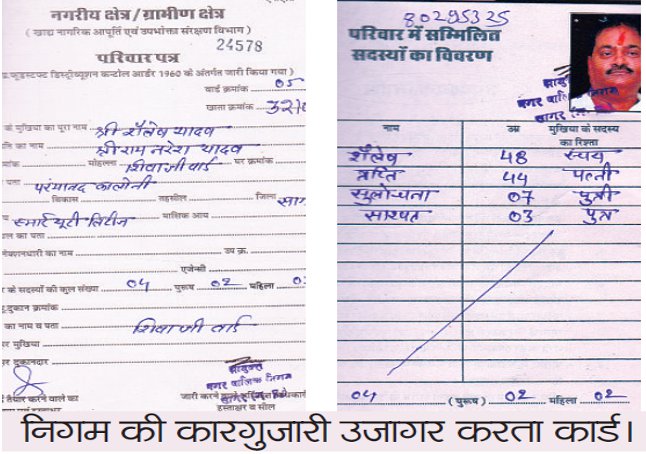 नगरीय क्षेत्र/ग्रामीण क्षेत्र
( खाद्य नागरिक आपूर्ति एवं उपभोक्ता संरक्षण विभाग )
24578
परिवार पत्र
डिस्ट्रीब्यूशन कन्ट्रोल आर्डर 1960 के अंतर्गत जारी किया गया )
वार्ड क्रमांक 05
खाता क्रमांक
के मुखिया का पूरा नाम श्री शैलेष यादव
का नाम श्री राम नरेश यादव
मोहल्ला शिवाजी वार्ड घर क्रमांक
पता परमानंद कालोनी
विकास तहसील जिला
मासिक आय
का पता
का नाम उप क्र.
एजेन्सी
के सदस्यों की कुल संख्या 04 पुरुष 02 महिला
दुकान क्रमांक
का नाम व पता शिवाजी वार्ड
मुखिया
दुकानदार
नगर पालिक निगम
तैयार करने वाले का जारी करने वाले
हस्ताक्षर व सील
80295325
परिवार में सम्मिलित
सदस्यों का विवरण
नगर पालिक निगम
सागर
नाम उम्र मुखिया के सदस्य
का रिश्ता
शैलेष 48 स्वयं
44 पत्नी
सुलोचना 07 पुत्री
03 पुत्र
04 ( पुरूष ) 02 महिला 02
निगम की कारगुजारी उजागर करता कार्ड।